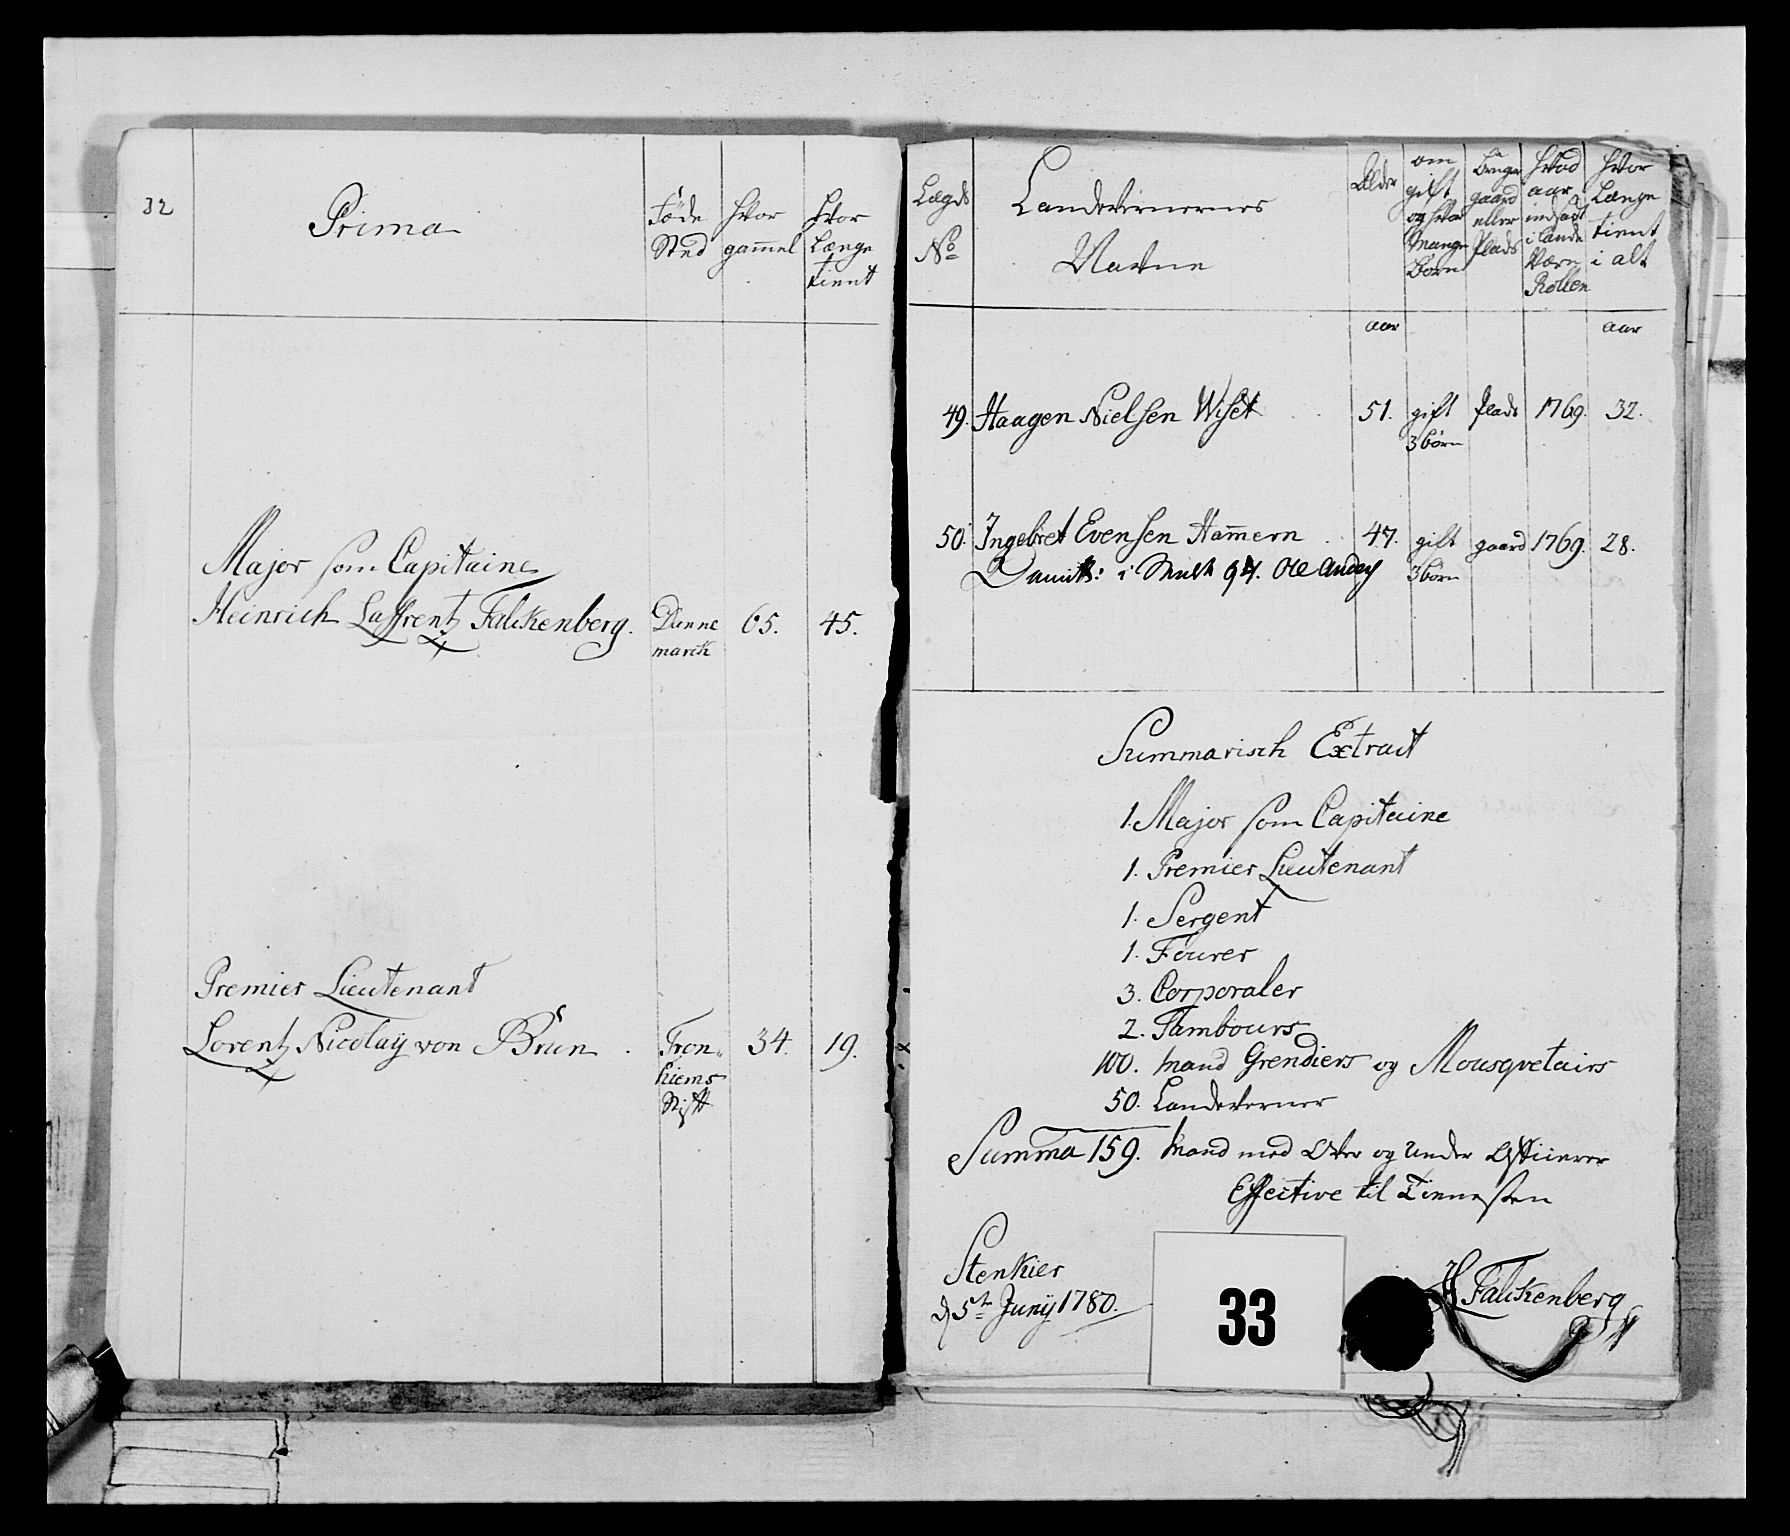 32
Prima
Föde Sted
hvor gam̄el
hvor Længe tient
Major som Capitaine
Heinrich Laffrentz Falckenberg. Dannemarck 65. 45.
Premier Lieutenant
Lorentz Nicolaij von Brun. Tronhiems Stift 34. 19.
Lægds No
Landeværnernes Navne
Alder
om gift og hvor Mange Börn
Bruger gaard eller Plads
hvad aar indsadt i Lande Værn Rollen
hvor Længe tient i alt
aar aar
49. Haagen Nielsen Wiset 51. gift 3 börn plads 1769. 32.
50. Ingebret Evensen Ham̄ern 47. gift 3 börn gaard 1769. 28.
i Ole
Summarisch Extract
1. Major som Capitaine
1. Premier Lieutenant
1. Sergent
1. Fourer
3. Corporaler
2. Tambours
100. Mand Grendiers og Mousqvetairs
50. Landeverner
Summa 159. Mand med Over og Under Officierer
Effective til Tienesten
Stenkier
d 5te Junij 1780.
H Falckenberg
33